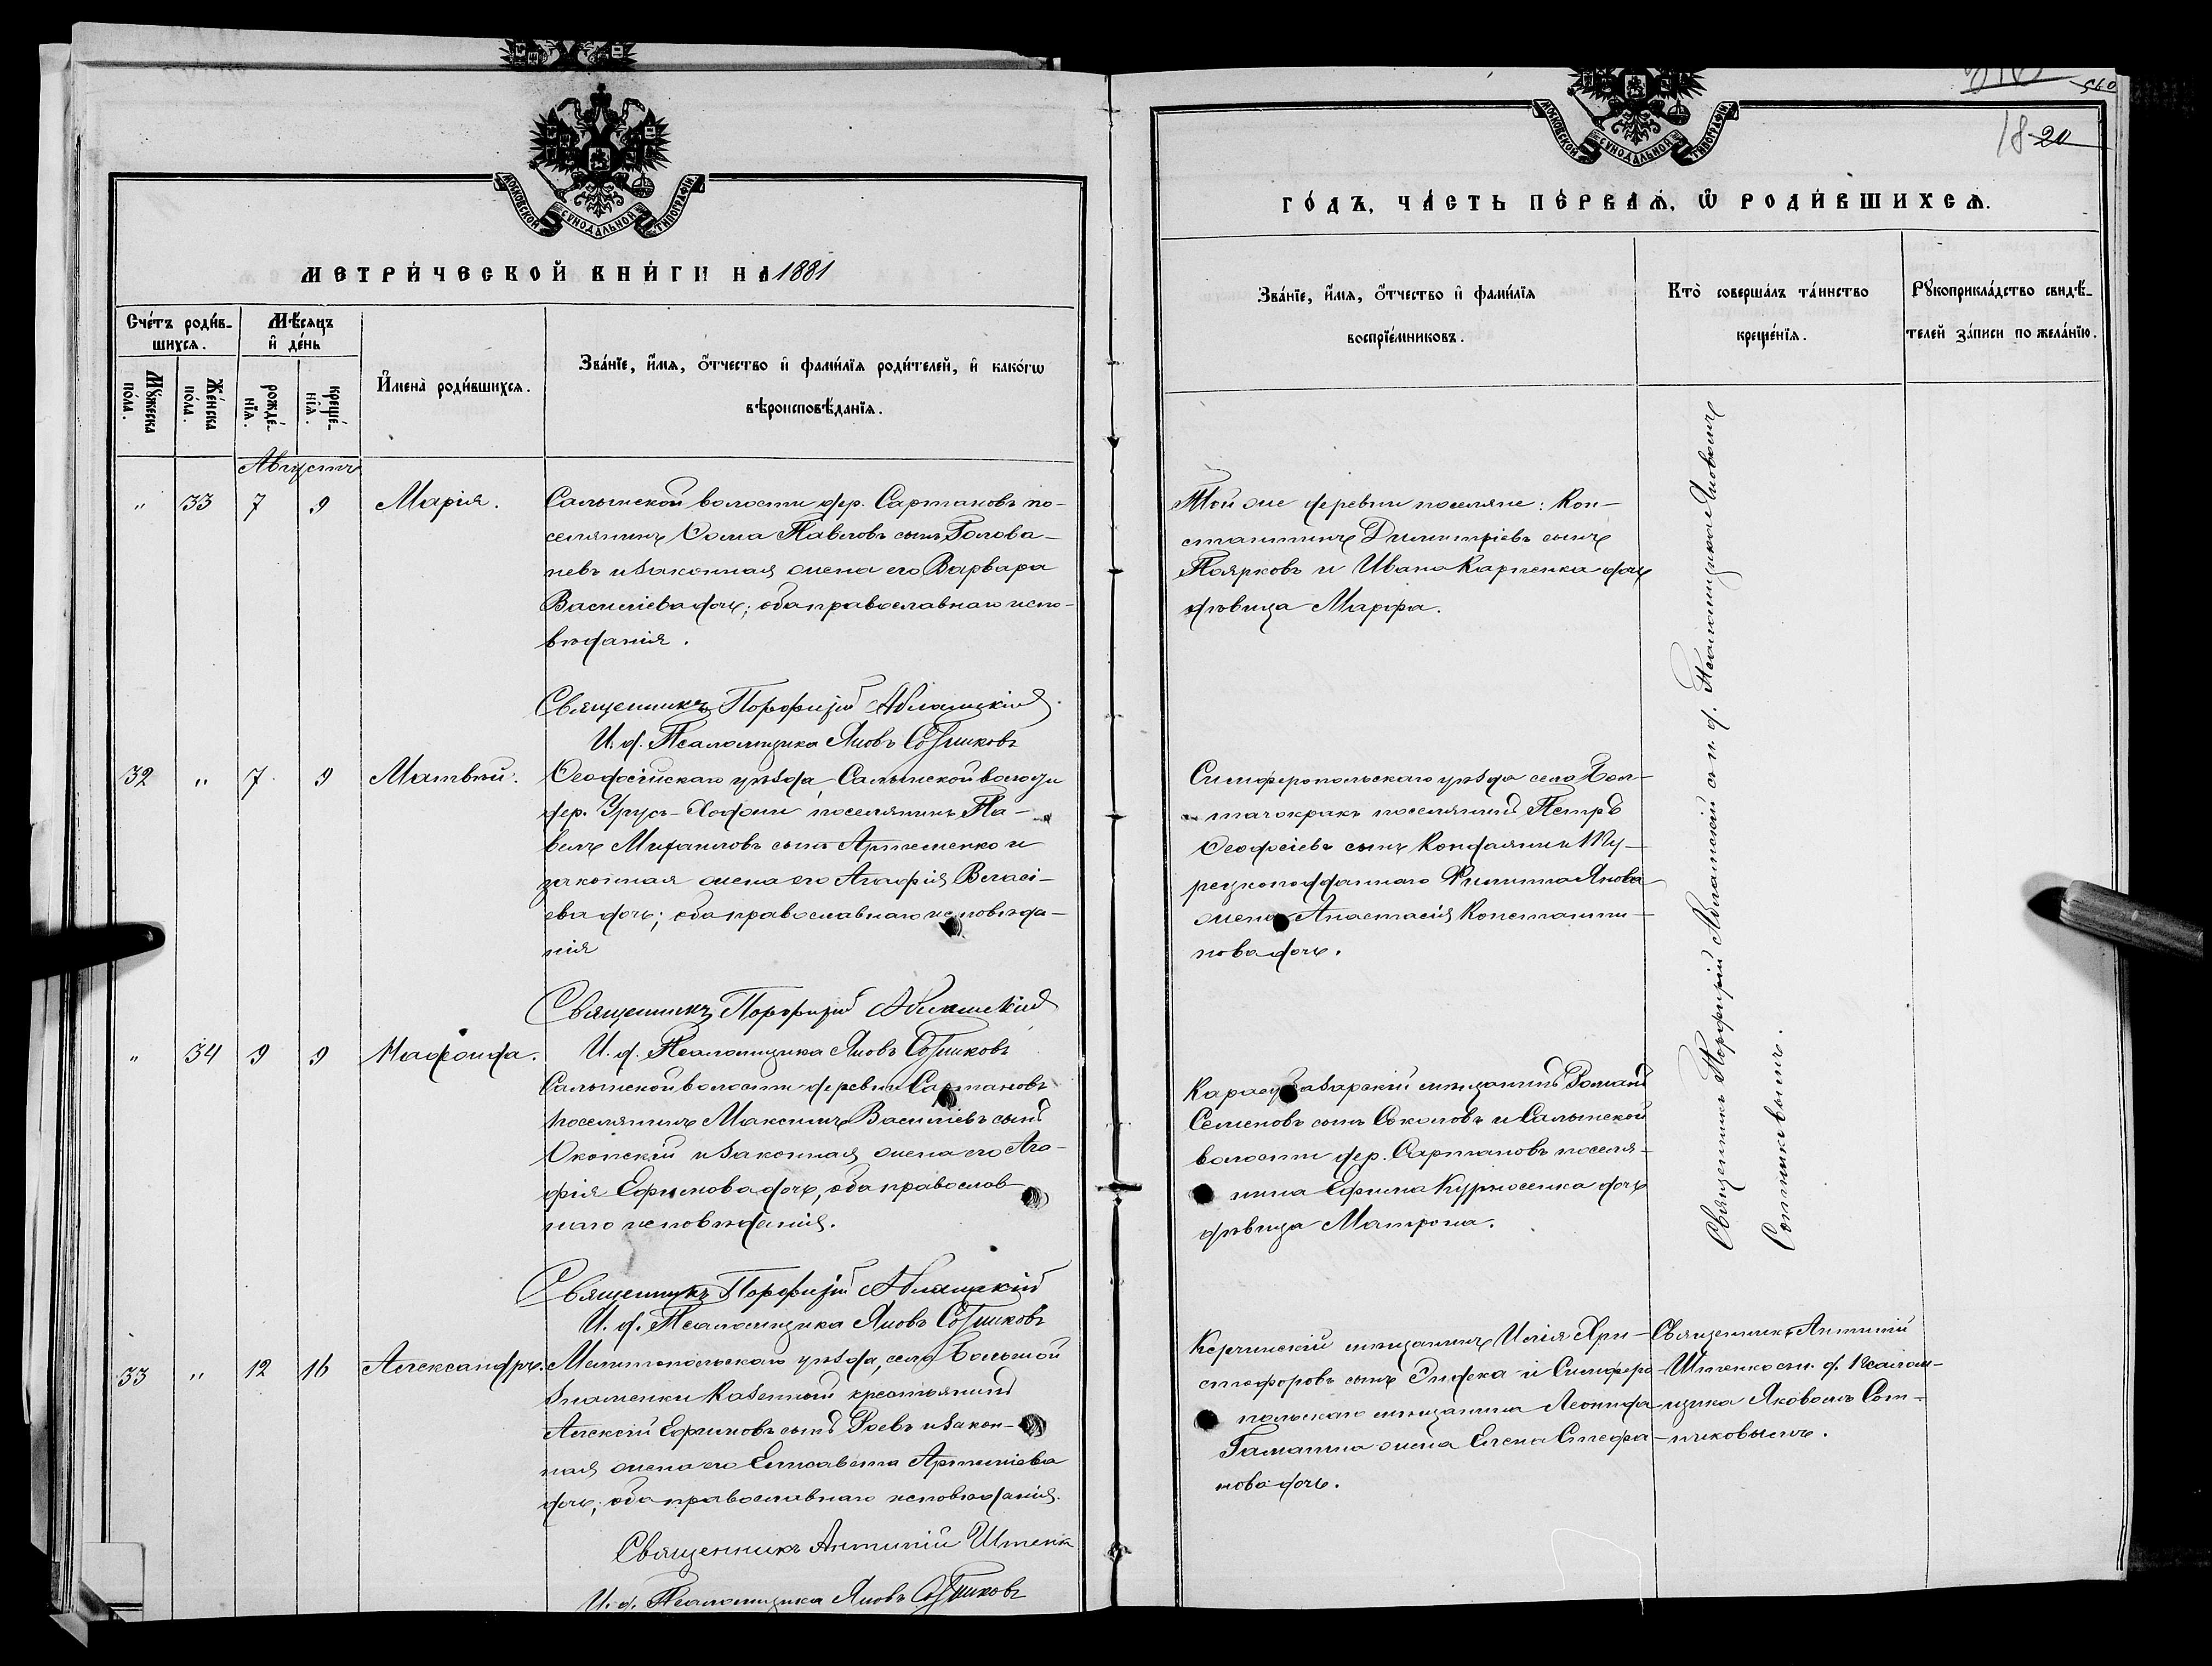 МОСКОВСКОЙ СѴНОДАЛЬНОЙ ТИПОГРАФІИ
МЕТРИ́ЧЕСКОЙ КНИ́ГИ НА 1881
Сче́тъ роди́в-
шихся.
Мѣ́сяцъ
и҆ де́нь
Мꙋ́жеска
по́ла.
Же́нска
по́ла.
рожде́-
нїя.
креще́-
нїя.
И҆мена̀ роди́вшихся.
Зва́нїе, и҆́мя, о҆́тчество и҆ фами́лїя роди́телей, и҆ како́гѡ
вѣроисповѣ́данїя.
Августъ
" 33 7 9 Марія.
Салынской волости дер. Сартановъ по-
селянинъ Ѳома Павловъ сынъ Голова-
невъ и законная жена его Варвара
Василіева дочь; оба православнаго испо-
вѣданія.
Священникъ Порфирій
И. д. Псаломщика Яковъ Сотниковъ
32 " 7 9 Матвѣй.
Ѳеодосійскаго уѣзда, Салынской волости
дер. Урусъ-Ходжи поселянинъ Па-
велъ Михаиловъ сынъ Артеменко и
законная жена его Агафія Власі-
ева дочь; оба православнаго исповѣда-
нія
Священникъ Порфирій
И. д. Псаломщика Яковъ Сотниковъ
" 34 9 9
Салынской волости деревни Сартановъ
поселянинъ Максимъ Василіевъ сынъ
и законная жена его Ага-
фія Ефимова дочь, оба православ-
наго исповѣданія.
Священникъ Порфирій
И. д. Псаломщика Яковъ Сотниковъ
33 " 12 16 Александръ.
Мелитопольскаго уѣзда, села Большой
Знаменки казенный крестьянинъ
Алексій Ефимовъ сынъ Роевъ и закон-
ная жена его Елисавета Артеміева
дочь; оба православнаго исповѣданія.
Священникъ Антипій
И. д. Псаломщика Яковъ Сотниковъ
МОСКОВСКОЙ СѴНОДАЛЬНОЙ ТИПОГРАФІИ
560
18 20
ГО́ДЪ, ЧА́СТЬ ПЕ́РВАЯ, Ѡ҆ РОДИ́ВШИХСЯ.
Зва́нїе, и҆́мя, о҆́тчество и҆ фами́лїя
воспрїе́мниковъ.
Кто̀ соверша́лъ та́инство
креще́нїя.
Рꙋкоприкла́дство свидѣ́-
телей за́писи по жела́нїю.
Той же деревни поселяне: Кон-
стантинъ Димитріевъ сынъ
Поярковъ и Ивана Карпенка дочь
дѣвица Марфа.
Симферопольскаго уѣзда села
поселянинъ Петръ
Ѳеодосіевъ сынъ и Ту-
рецкоподданнаго Филиппа Якова
жена Анастасія Константи-
нова дочь.
Карасубазарскій мѣщанинъ Романъ
Семеновъ сынъ Соколовъ и Салынской
волости дер. Сартановъ поселя-
нина Ефима Курносенка дочь
дѣвица Матрона.
Керчинскій мѣщанинъ Илія Хри-
стофоровъ сынъ и Симферо-
польскаго мѣщанина Леонида
Гаманина жена Елена Стефа-
нова дочь.
Священникъ Порфирій съ и. д. Псаломщика Яковомъ
Сотниковымъ.
Священникъ Антипій
съ и. д. Псалом-
щика Яковомъ Сот-
никовымъ.